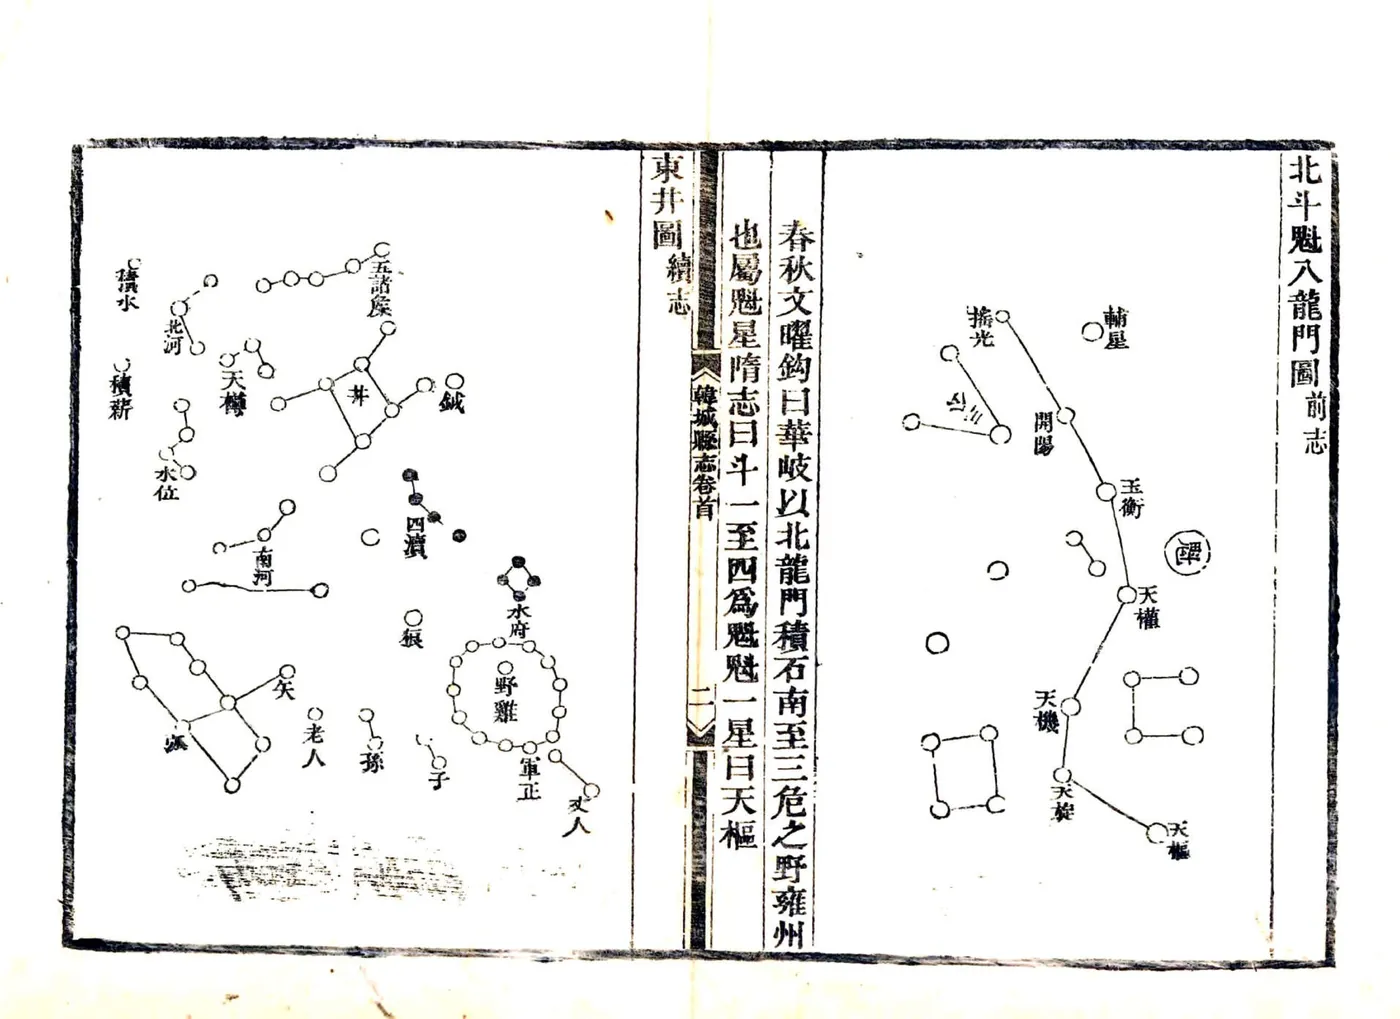 北斗魁八龍門圖前志
輔星
搖光
開陽
玉衡
天權
天機
天璇
天樞
春秋文曜鈎曰華岐以北龍門積石南至三危之野雍州
也屬魁星隋志曰斗一至四爲魁魁一星曰天樞
韓城縣志卷首
二
東井圖續志
五諸矦
北河
積水
積薪
天樽
井
鉞
水位
四瀆
南河
水府
狼
野雞
軍正
丈人
矢
弧
老人
孫
子